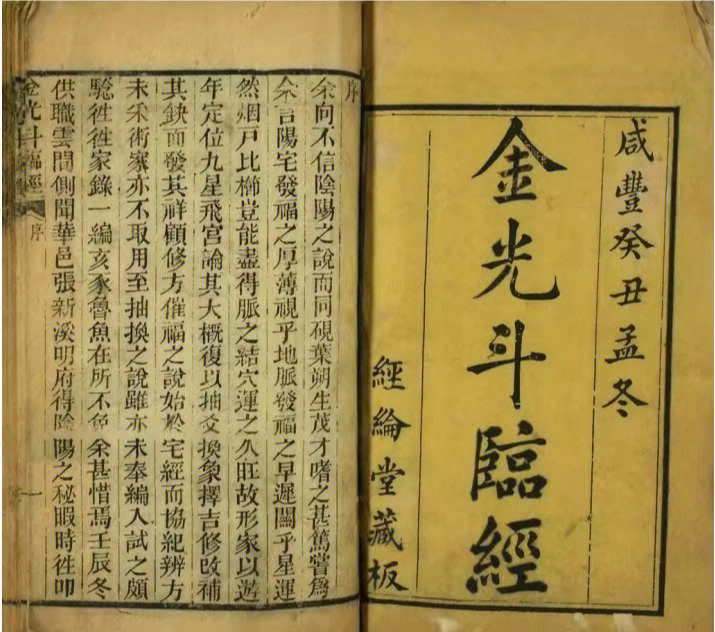 咸豐癸丑孟冬
金光斗臨經
經綸堂藏板
序
余向不信陰陽之說而同硯葉朔生茂才嗜之甚篤嘗爲
余言陽宅發福之厚薄視乎地脈發福之早遲關乎星運
然烟戸比櫛豈能盡得脈之結穴運之久旺故形家以遊
年定位九星飛宮論其大概復以抽爻換象擇吉修改補
其缺而發其祥顧修方催福之說始於宅經而協紀辨方
未采術家亦不取用至抽換之說雖亦未奉編入試之頗
騐徃徃家錄一編亥豕魯魚在所不免余甚惜焉壬辰冬
供職雲間側聞華邑張新溪明府得陰陽之秘暇時徃叩
金光斗臨經
序
一